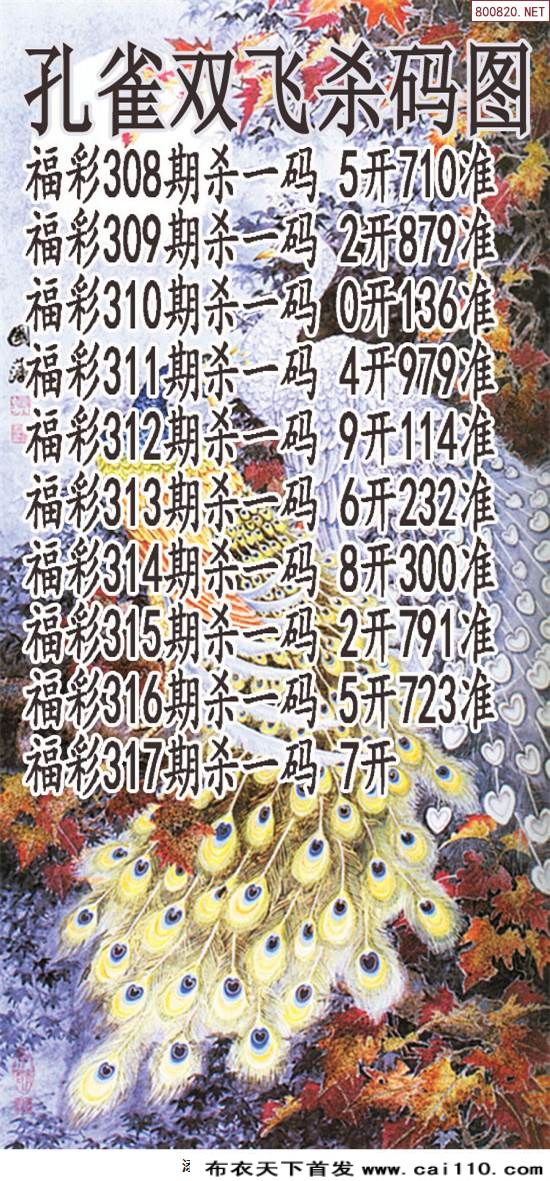 800820.NET
孔雀双飞杀码图
福彩308期杀一码 5开710准
福彩309期杀一码 2开879准
福彩310期杀一码 0开136准
福彩311期杀一码 4开979准
福彩312期杀一码 9开114准
福彩313期杀一码 6开232准
福彩314期杀一码 8开300准
福彩315期杀一码 2开791准
福彩316期杀一码 5开723准
福彩317期杀一码 7开
布衣天下首发 www.cai110.com